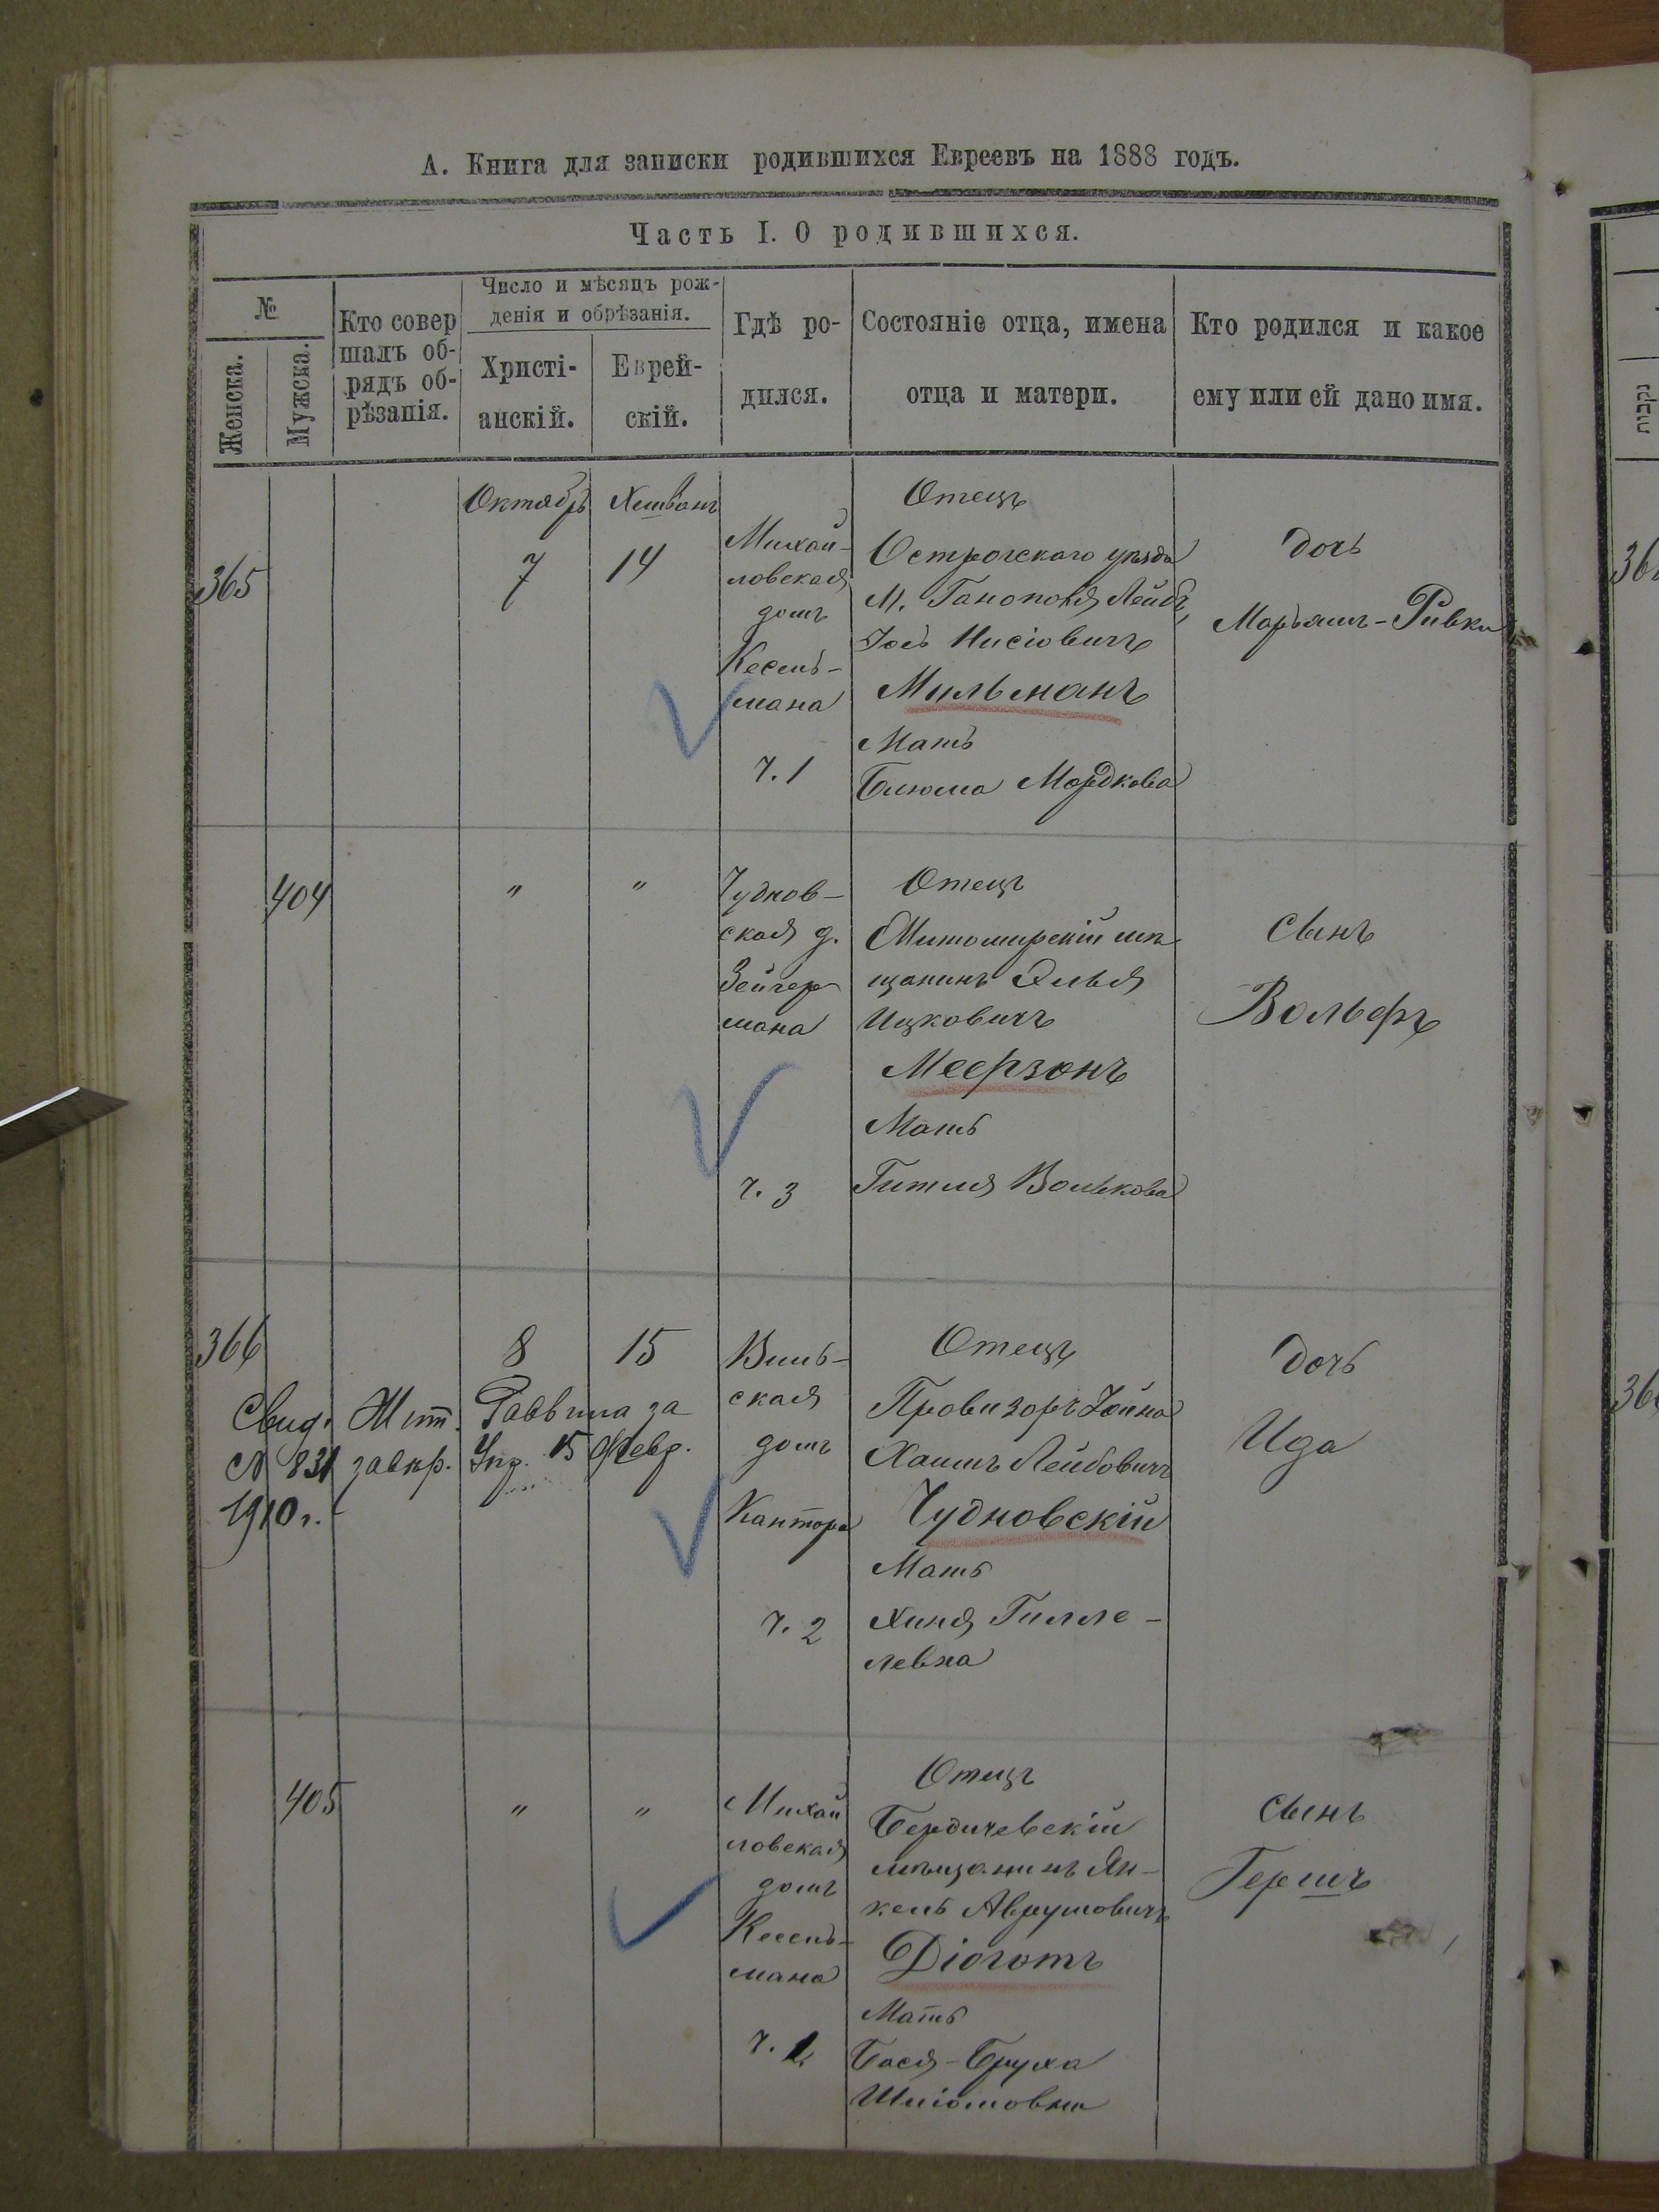 А. Книга для записки родившихся Евреевъ на 1888 годъ.
Часть I. О родившихся.
№
Женска.
Мужска.
Кто совер
шалъ об-
рядъ об-
рѣзанія.
Число и мѣсяцъ рож-
денія и обрѣзанія.
Христі-
анскій.
Еврей-
скій.
Гдѣ ро-
дился.
Состояніе отца, имена
отца и матери.
Кто родился и какое
ему или ей дано имя.
365
Октябрь
7
Хешванъ
14
Михай-
ловская
домъ
Кесель-
мана
ч. 1
Отецъ
Острогскаго уѣзда
М. Ганополя Лейбъ
Іось Нисіовичъ
Мильманъ
Мать
Блюма Мордкова
дочь
Марьямъ-Ривка
404
"
"
Чуднов-
ская д.
Зейгер
мана
ч. 3
Отецъ
Житомирскій мѣ
щанинъ Элья
Ицковичъ
Меерзонъ
Мать
Гитля Волькова
сынъ
Вольфъ
366
8
15
Свид. Жит. Раввина за
№ 831 завѣр. Упр. 15 Февр.
1910 г.
Виль-
ская
домъ
Кантора
ч. 2
Отецъ
Провизоръ Іойна
Хаимъ Лейбовичъ
Чудновскій
Мать
Хиня Гилле-
левна
дочь
Ида
405
"
"
Михай
ловская
домъ
Кесель-
мана
ч. 1
Отецъ
Бердичевскій
мѣщанинъ Ян-
кель Аврумовичъ
Діоготь
Мать
Бася-Бруха
Шліомовна
сынъ
Гершъ
נקבות